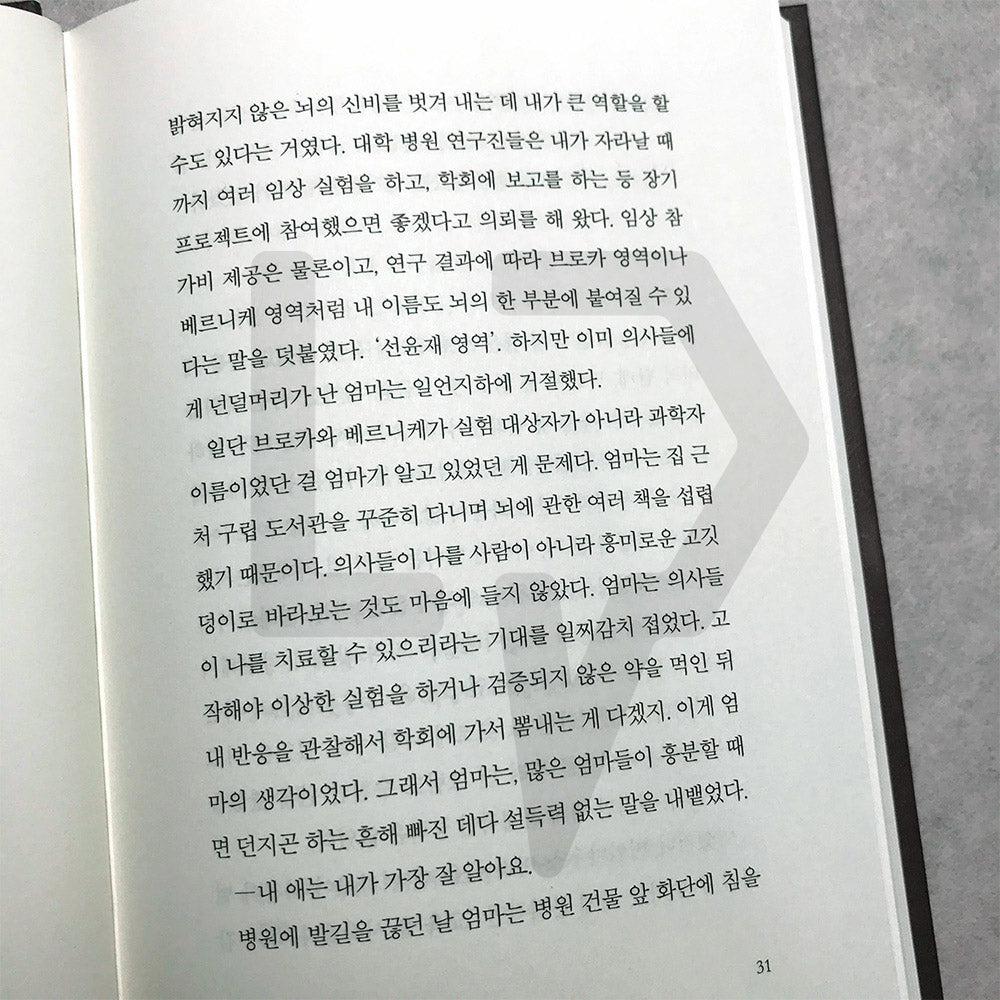 밝혀지지 않은 뇌의 신비를 벗겨 내는 데 내가 큰 역할을 할
수도 있다는 거였다. 대학 병원 연구진들은 내가 자라날 때
까지 여러 임상 실험을 하고, 학회에 보고를 하는 등 장기
프로젝트에 참여했으면 좋겠다고 의뢰를 해 왔다. 임상 참
가비 제공은 물론이고, 연구 결과에 따라 브로카 영역이나
베르니케 영역처럼 내 이름도 뇌의 한 부분에 붙여질 수 있
다는 말을 덧붙였다. ‘선윤재 영역’. 하지만 이미 의사들에
게 넌덜머리가 난 엄마는 일언지하에 거절했다.
일단 브로카와 베르니케가 실험 대상자가 아니라 과학자
이름이었단 걸 엄마가 알고 있었던 게 문제다. 엄마는 집 근
처 구립 도서관을 꾸준히 다니며 뇌에 관한 여러 책을 섭렵
했기 때문이다. 의사들이 나를 사람이 아니라 흥미로운 고깃
덩이로 바라보는 것도 마음에 들지 않았다. 엄마는 의사들
이 나를 치료할 수 있으리라는 기대를 일찌감치 접었다. 고
작해야 이상한 실험을 하거나 검증되지 않은 약을 먹인 뒤
내 반응을 관찰해서 학회에 가서 뽐내는 게 다겠지. 이게 엄
마의 생각이었다. 그래서 엄마는, 많은 엄마들이 흥분할 때
면 던지곤 하는 흔해 빠진 데다 설득력 없는 말을 내뱉었다.
―내 애는 내가 가장 잘 알아요.
병원에 발길을 끊던 날 엄마는 병원 건물 앞 화단에 침을
31